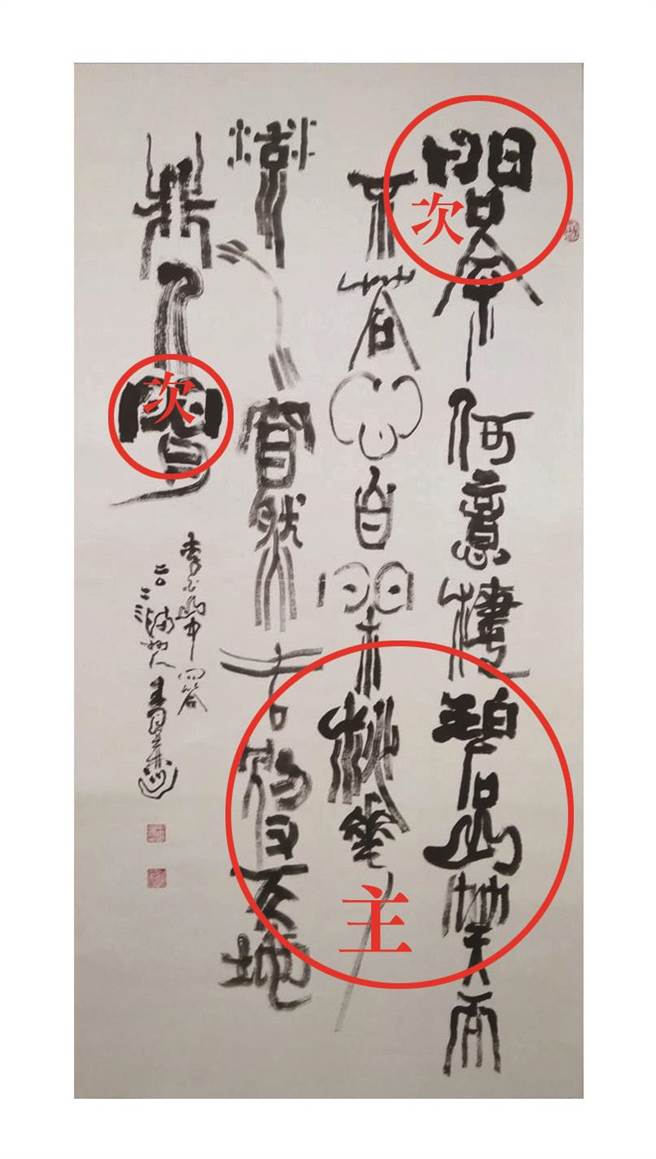 問余何意棲碧山笑而
不答心自閑桃花
流水窅然去別有天地
非人間
李白山中問答
次
次
主